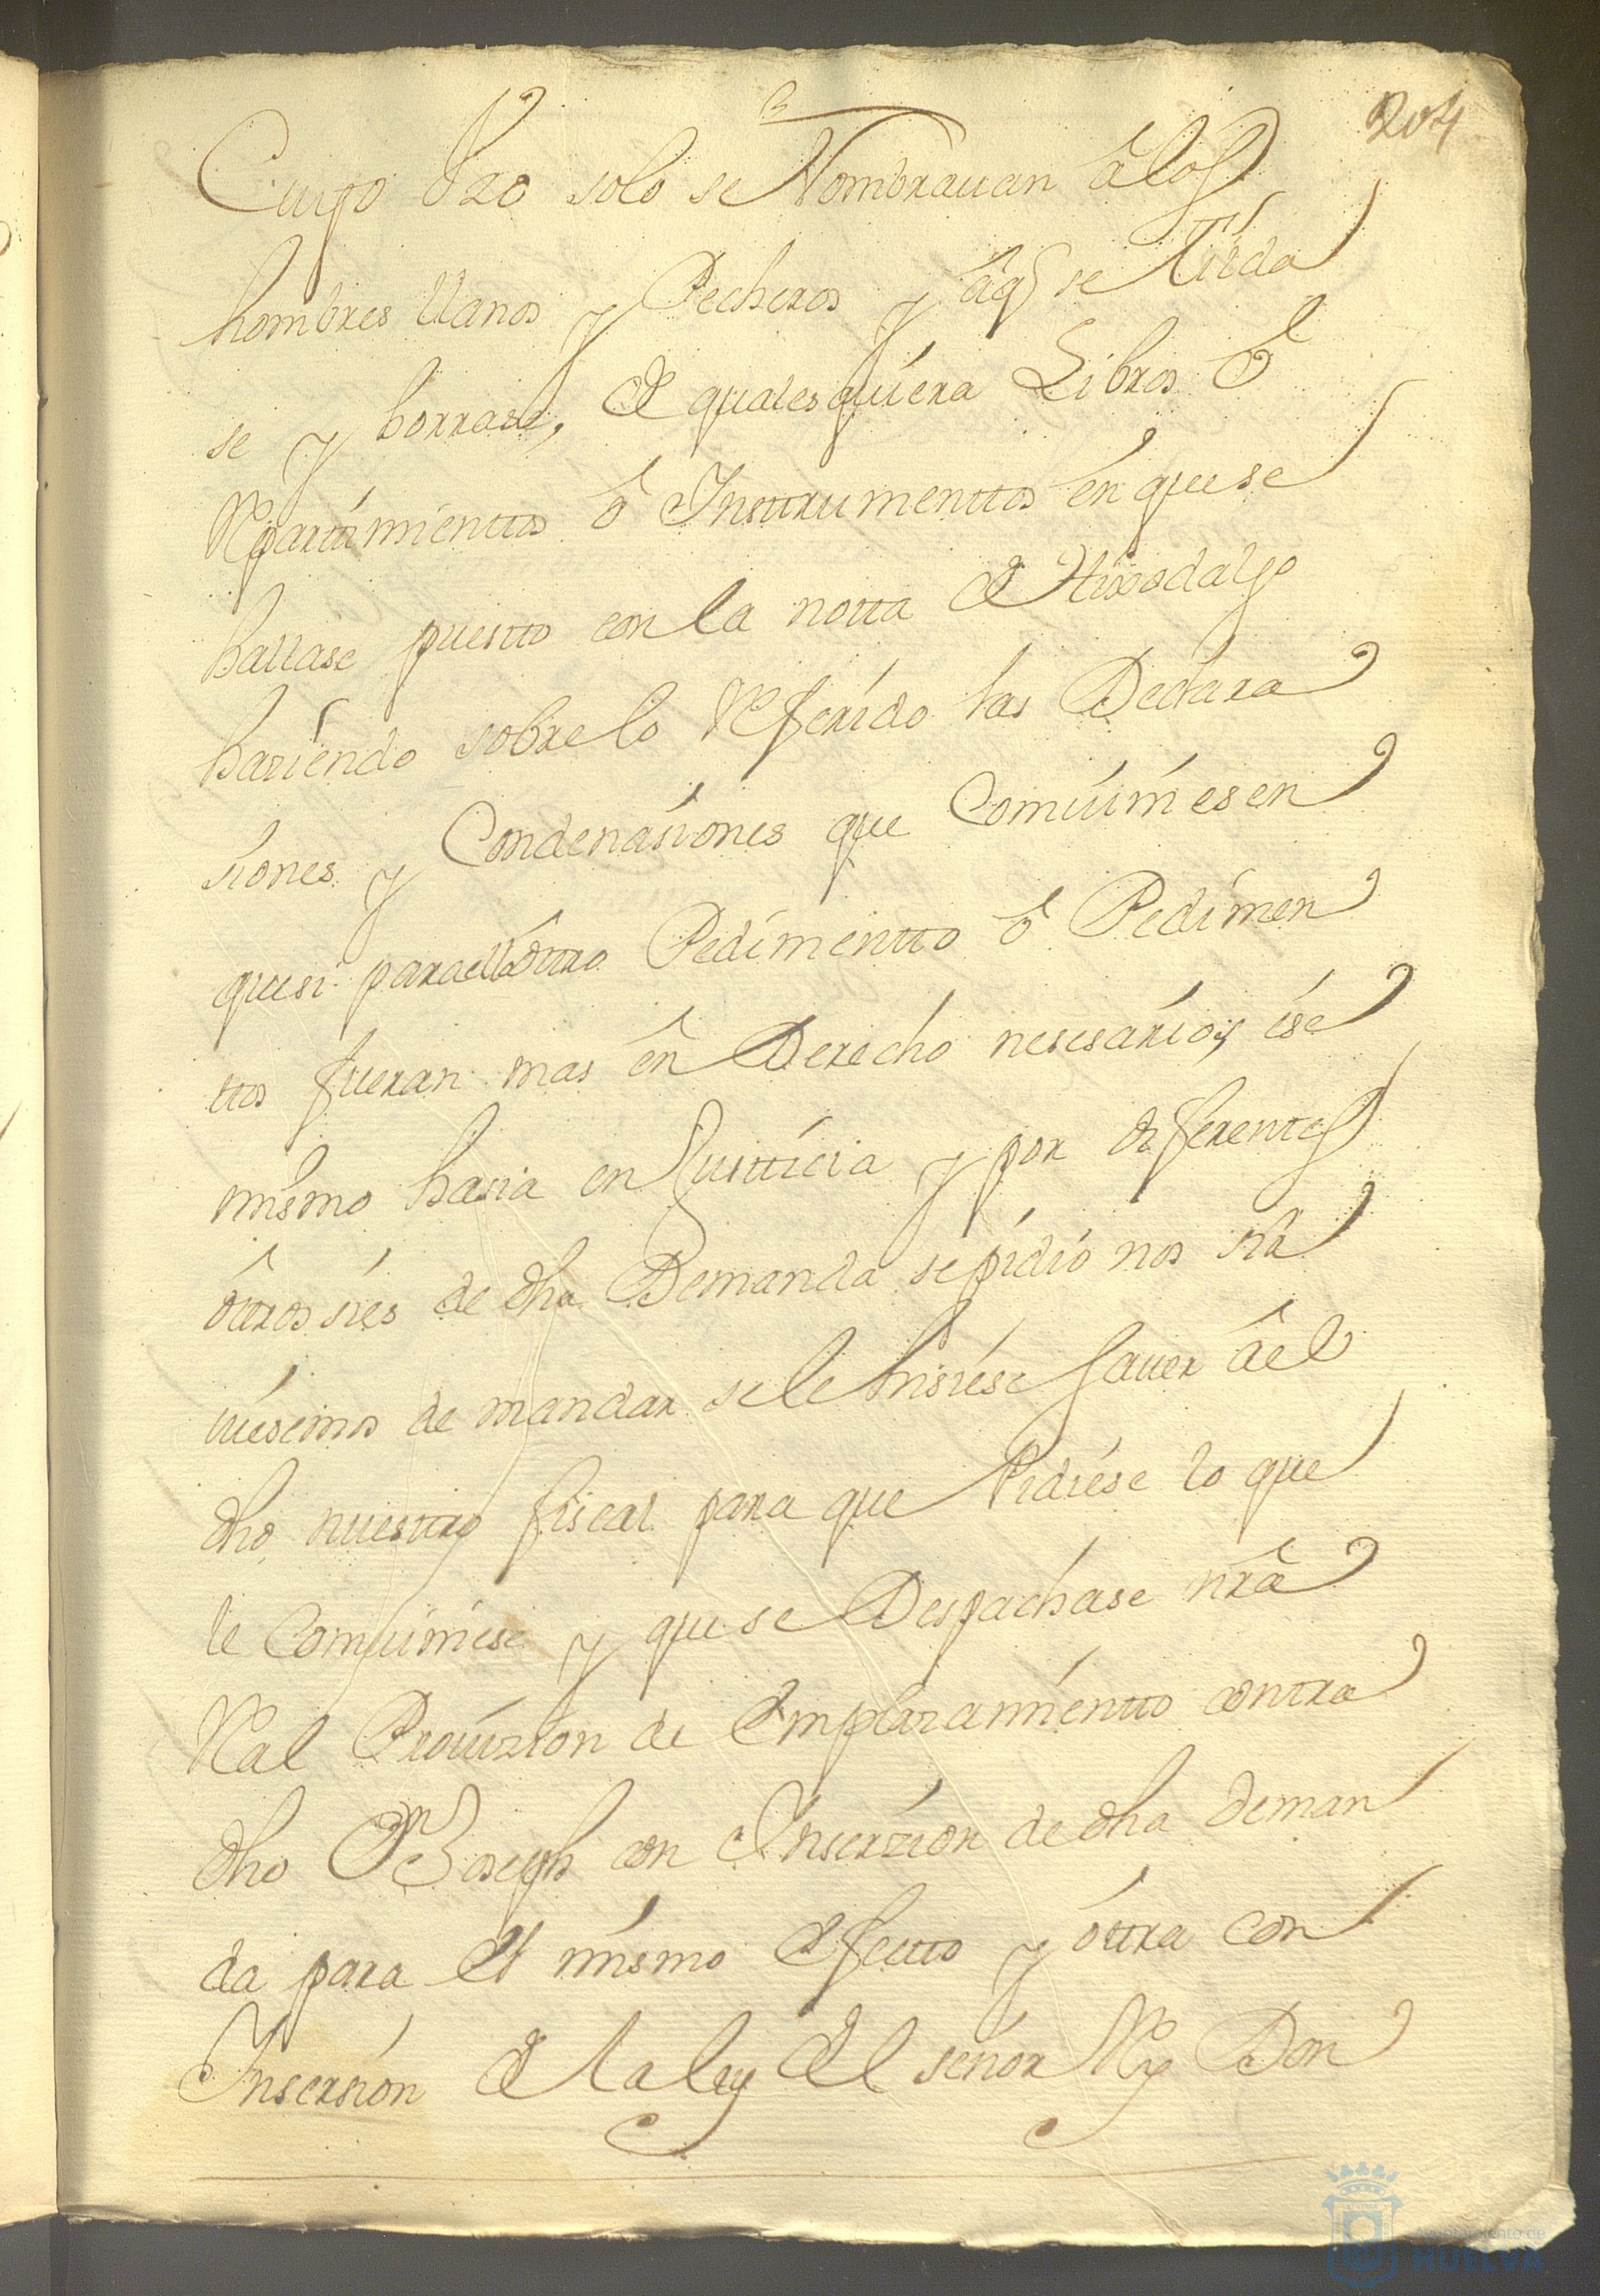 204
Cuyo Uzo solo se Nombrauan â los
hombres llanos y Pecheros y âq se tilda
se y borrase, de qualesquiera Libros ô
Repartimienttos ô Instrumenttos en que se
hallase puestto con la notta de Hixodalgo
haziendo sobre lo Referido las Declara
siones y Condenasiones que Comuiniesen
que si para ello ôttro Pedimentto ô Pedimen
ttos fueran mas ên Derecho nesesarios, ese
mismo hasia en Justticia y por diferentes
ôttros sies de dha Demanda se pidio nos sir
uiesemos de mandar se le hisiese Sauer âel
dho nuesttro fiscal para que Pidiese lo que
le Comuiniese y que se Despachase nrâ
Real Prouizion de Emplazamientto contra
dho Dn Joseph con Inserzion de dha deman
da para el mismo Efectto y ôttra con
Insersion de la ley del señor Rey Don
Ayuntamiento de
HUELVA